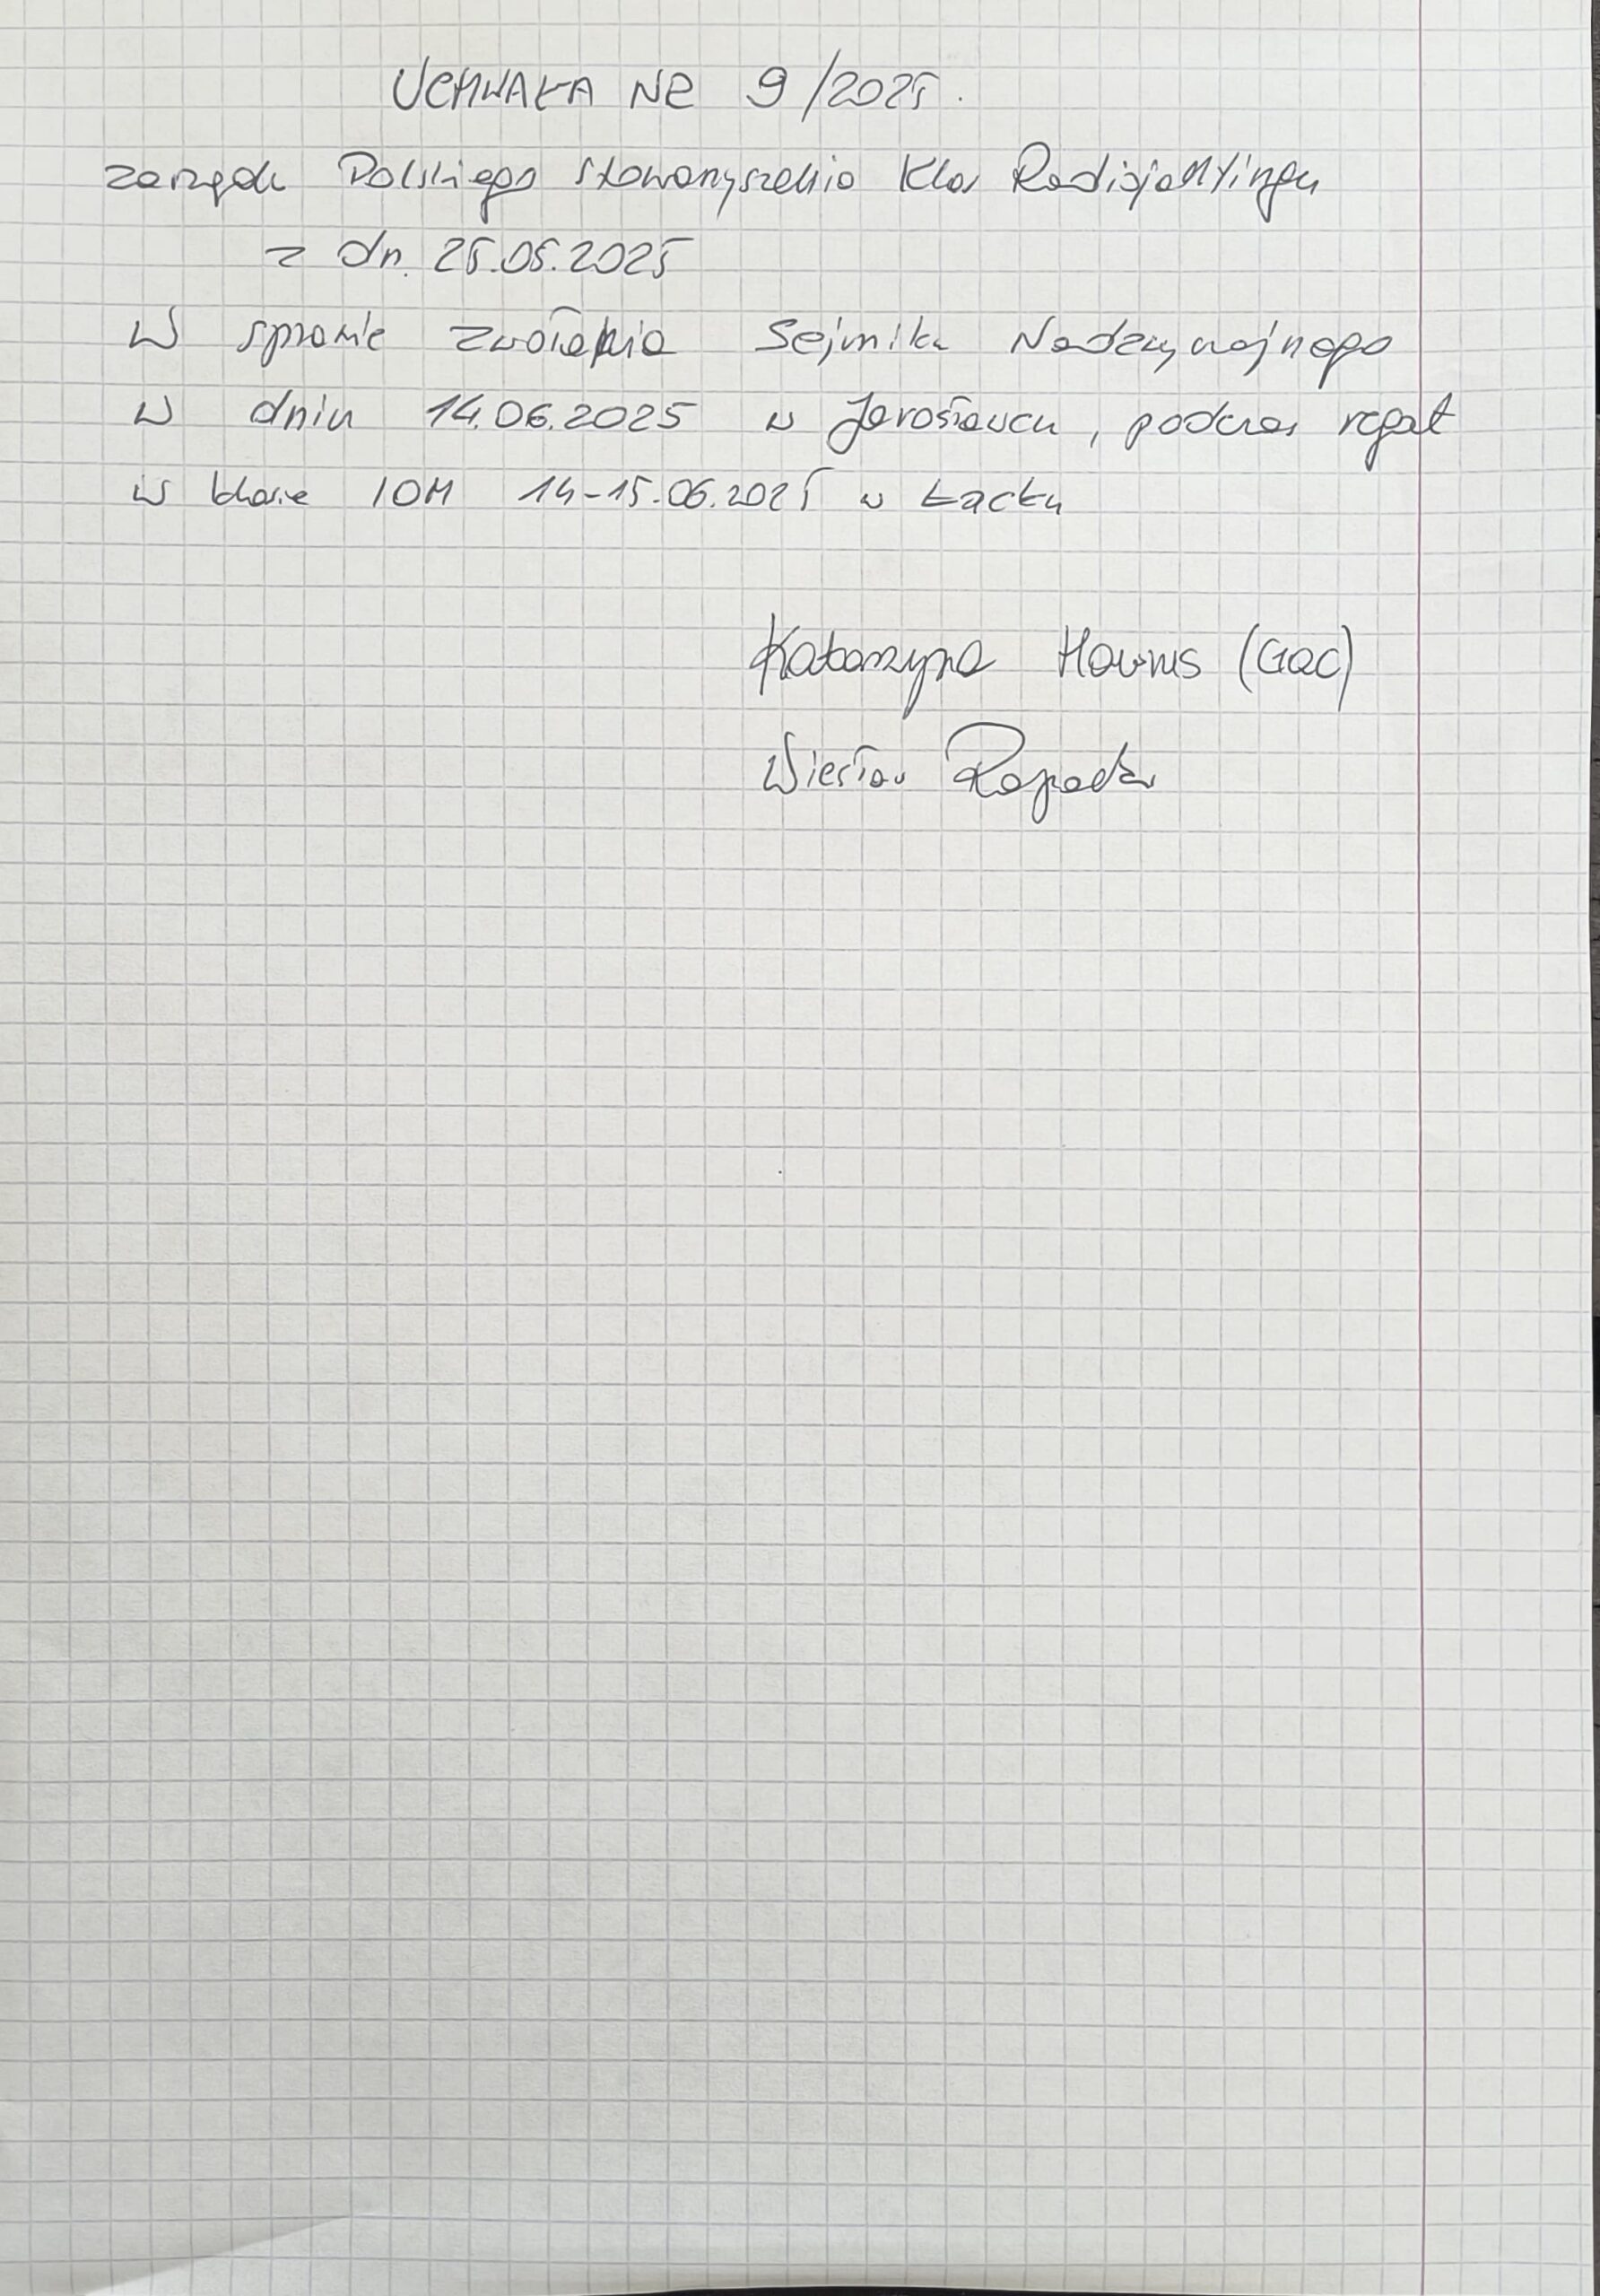 UCHWAŁA NR 9/2025.
Zarządu Polskiego Stowarzyszenia Klas Radiojachtingu
z dn. 25.05.2025
W sprawie zwołania Sejmiku Nadzwyczajnego
w dniu 14.06.2025 w Jarosławcu, podczas regat
w klasie IOM 14-15.06.2025 w Łącku
Katarzyna (Gac)
Wiesław